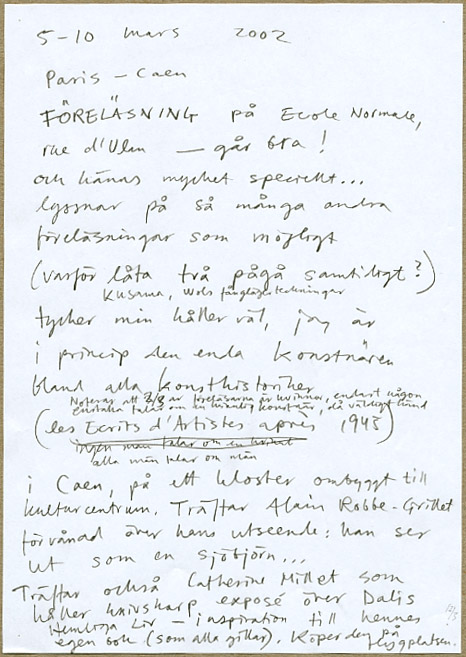 5-10 mars 2002
Paris - Caen
FÖRELÄSNING på Ecole Normale,
rue d'Ulm — går bra!
och känns mycket speciellt...
lyssnar på så många andra
föreläsningar som möjligt
(varför låta två pågå samtidigt?)
Kusama, Wols fånglägerteckningar
tycker min håller väl, jag är
i princip den enda konstnären
bland alla konsthistoriker
Noterar att 2/3 av föreläsarna är kvinnor, endast någon
enstaka talar om en kvinnlig konstnär, då väldigt känd
(les Ecrits d'Artistes après 1945)
ingen man talar om en kvinna
alla män talar om män
i Caen, på ett kloster ombyggt till
kulturcentrum. Träffar Alain Robbe-Grillet
förvånad över hans utseende: han ser
ut som en sjöbjörn...
Träffar också Catherine Millet som
håller knivskarp exposé över Dalis
Hemliga Liv — inspiration till hennes
egen bok (som alla gillar). Köper den på
flygplatsen.